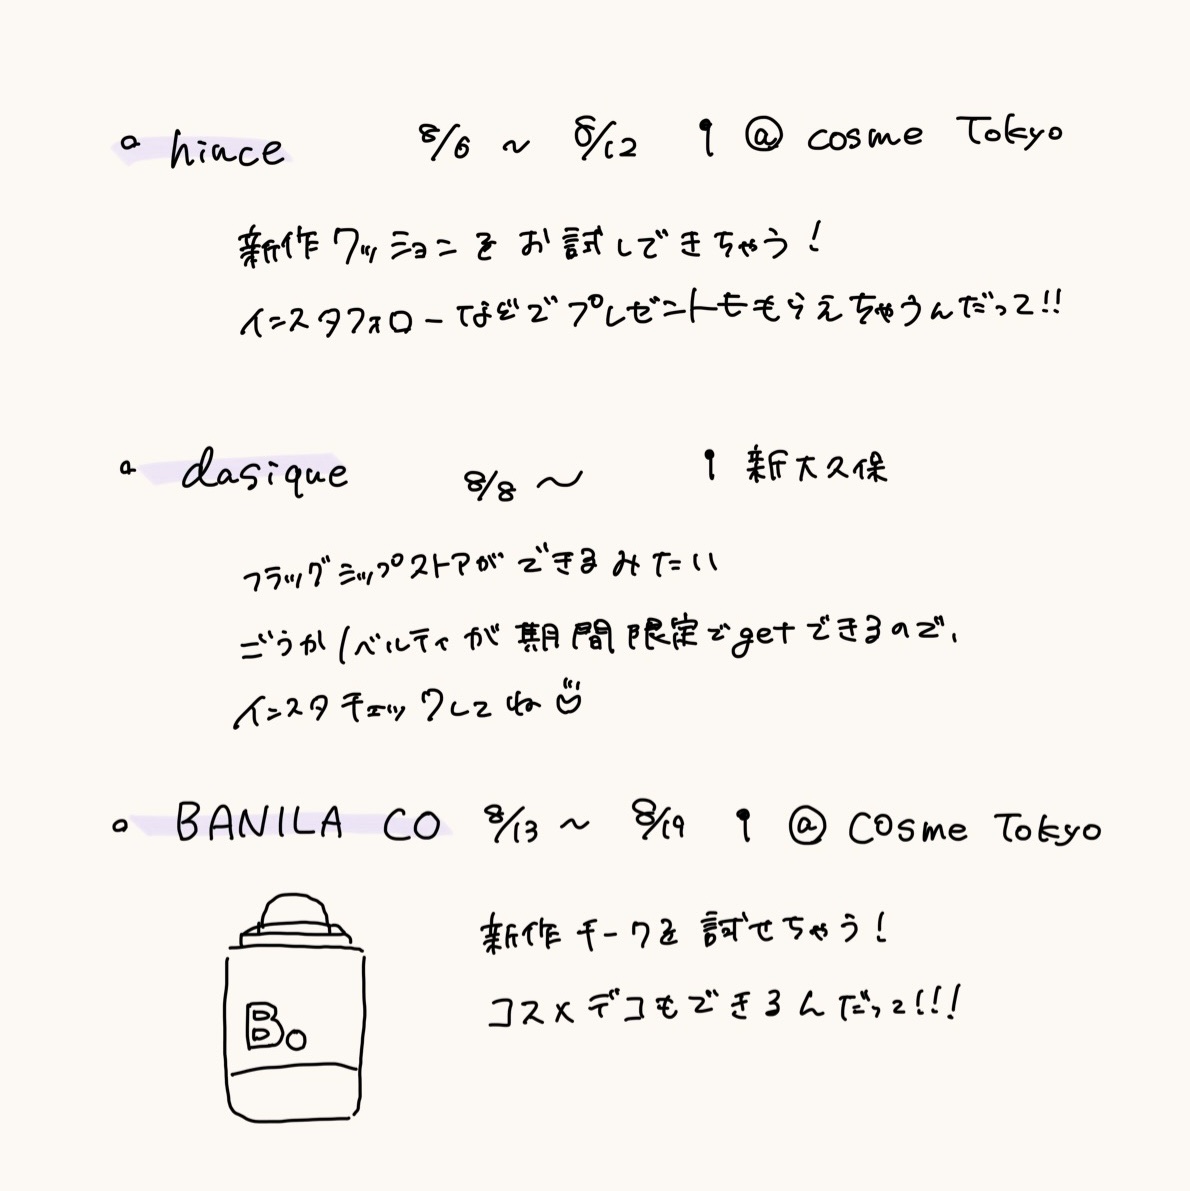 hince 8/6 ~ 8/12 @cosme Tokyo
新作クッションをお試しできちゃう!
インスタフォローなどでプレゼントももらえちゃうんだって!!
dasique 8/8 ~ 新大久保
フラッグシップストアができるみたい
ごうかノベルティが期間限定でgetできるので、
インスタチェックしてね
BANILA CO 8/13 ~ 8/19 @cosme Tokyo
新作チークを試せちゃう!
コスメデコもできるんだって!!!
B.